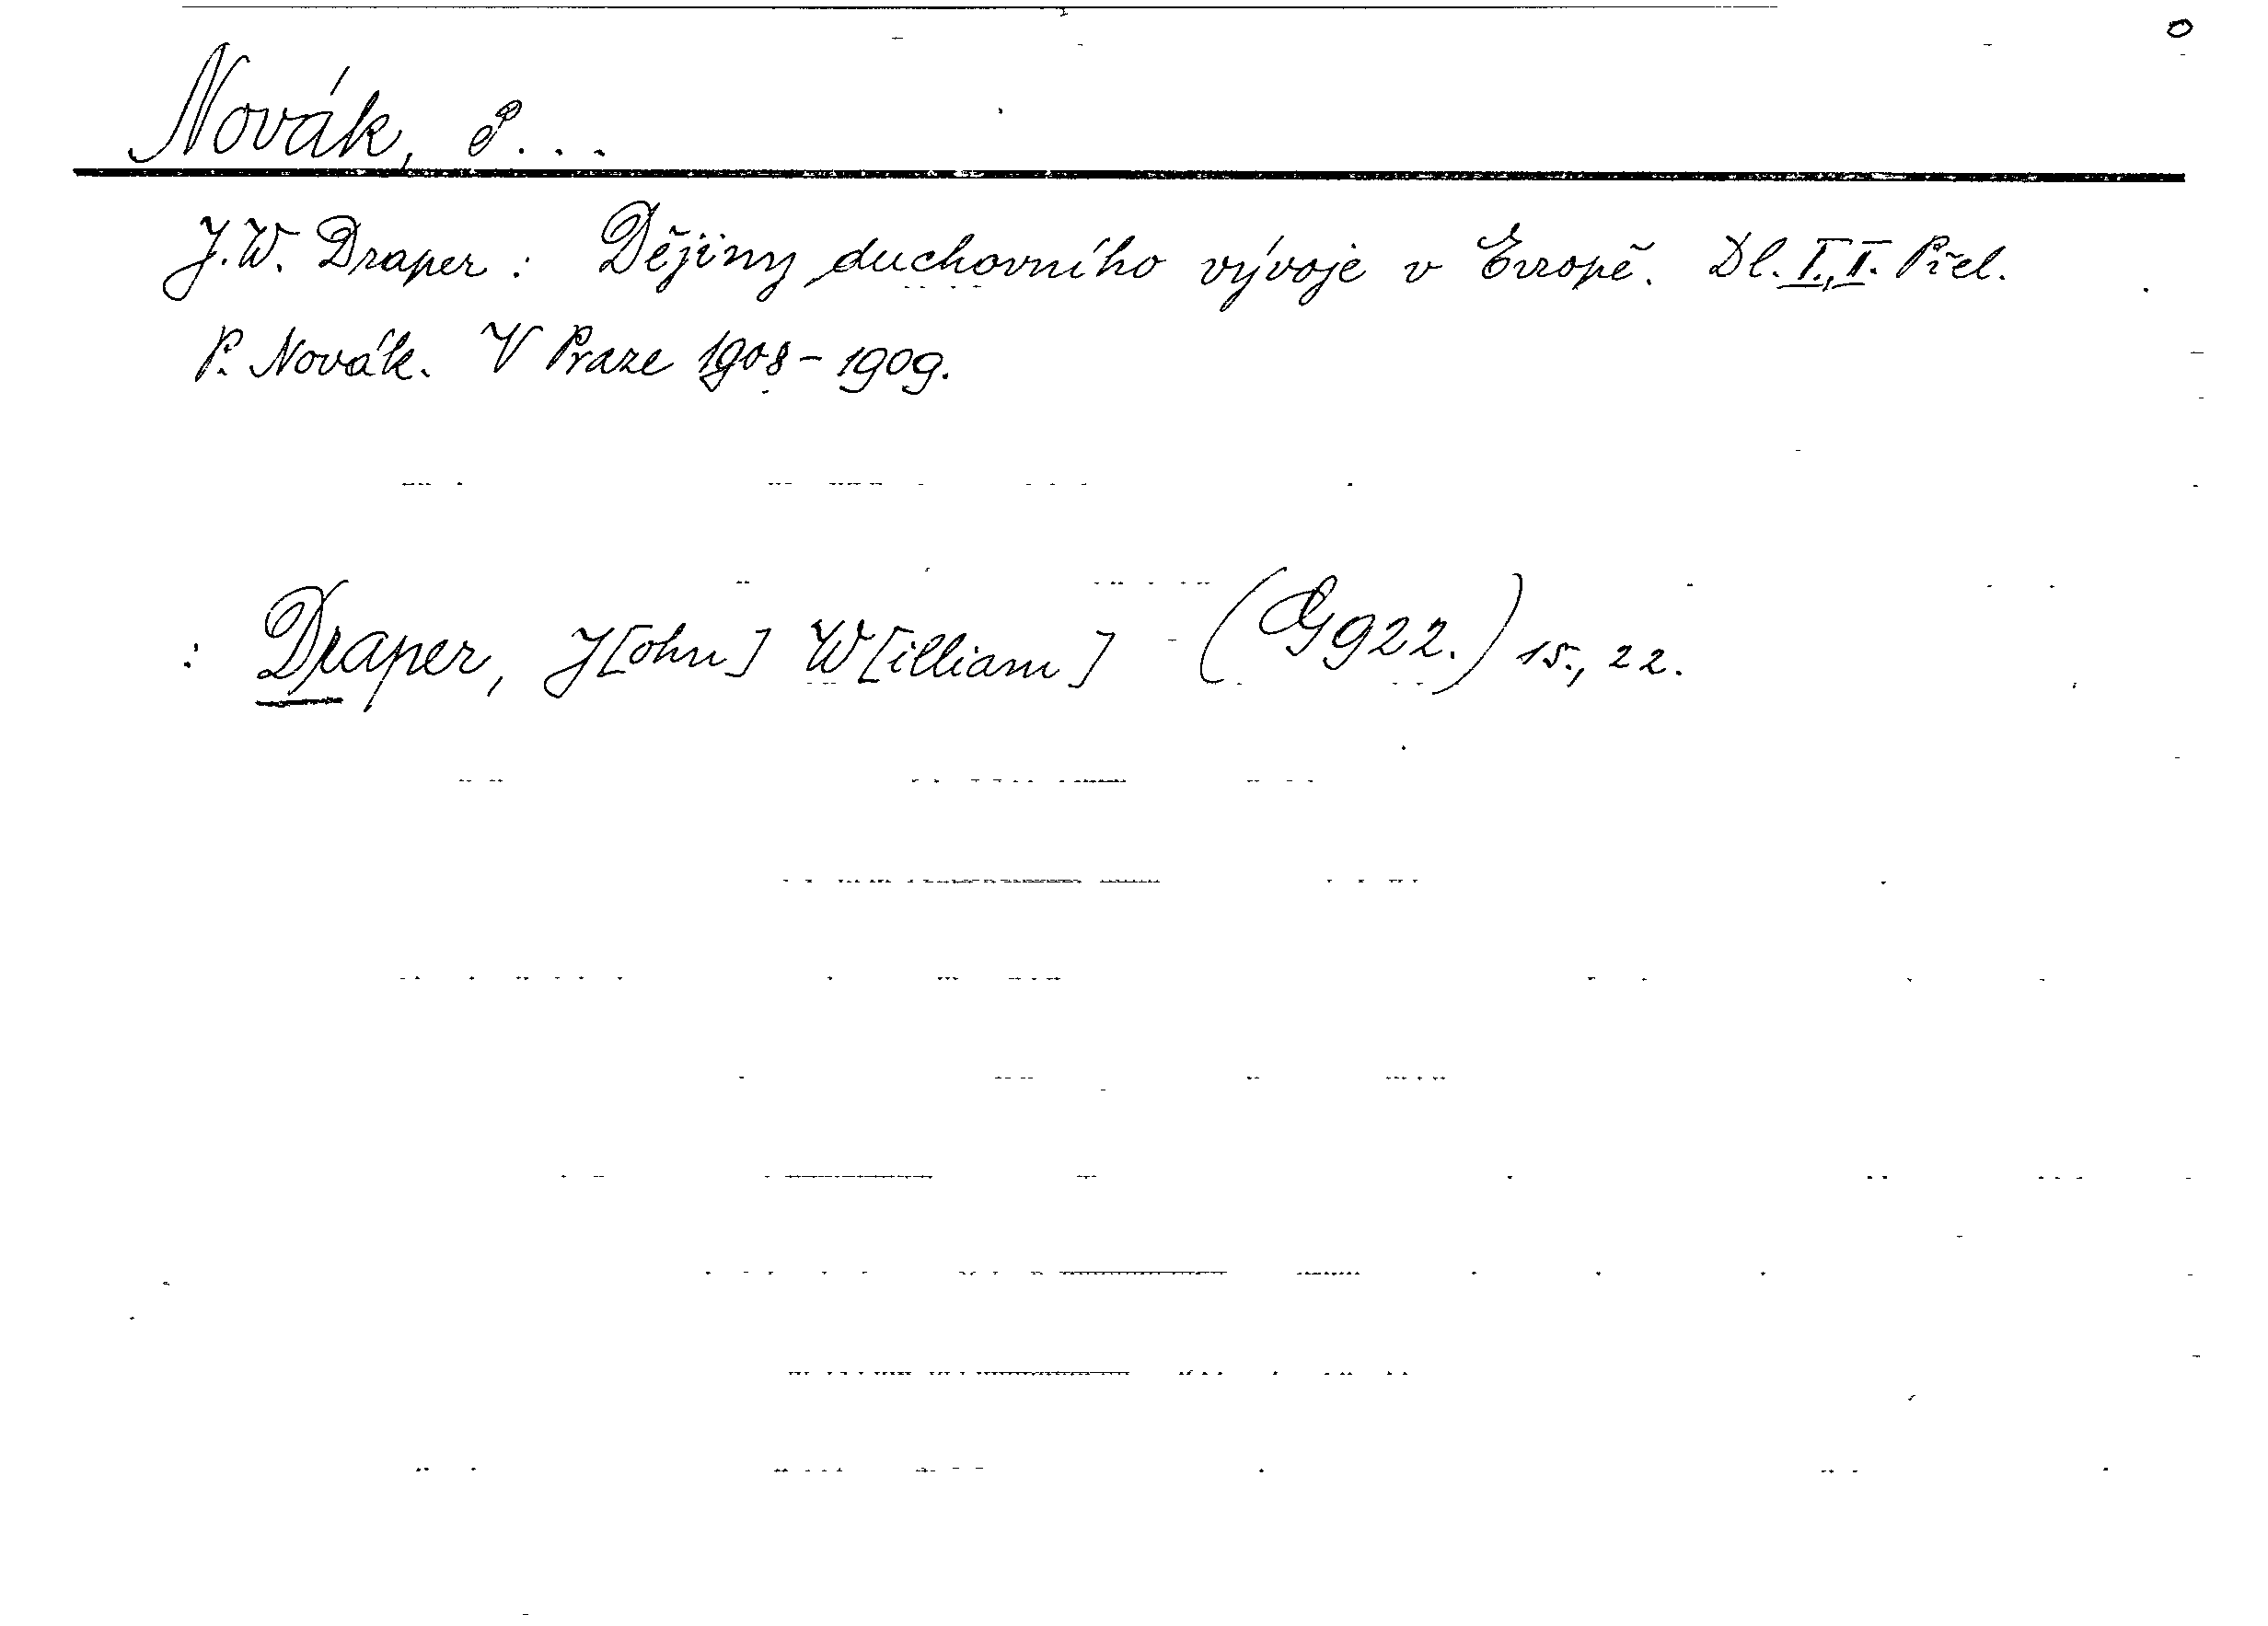 Novák, P...
J.W. Draper: Dějiny duchovního vývoje v Evropě. Dl. I., II. Přel.
P. Novák. V Praze 1908-1909.
: Draper, J[ohn] W[illiam] - (Gg22.) 15., 22.